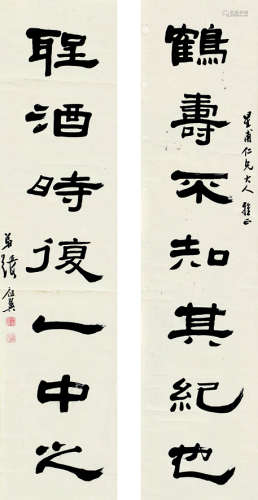 星甫仁兄大人雅正
鶴壽不知其紀也
聖酒時復一中之
弟張祖翼